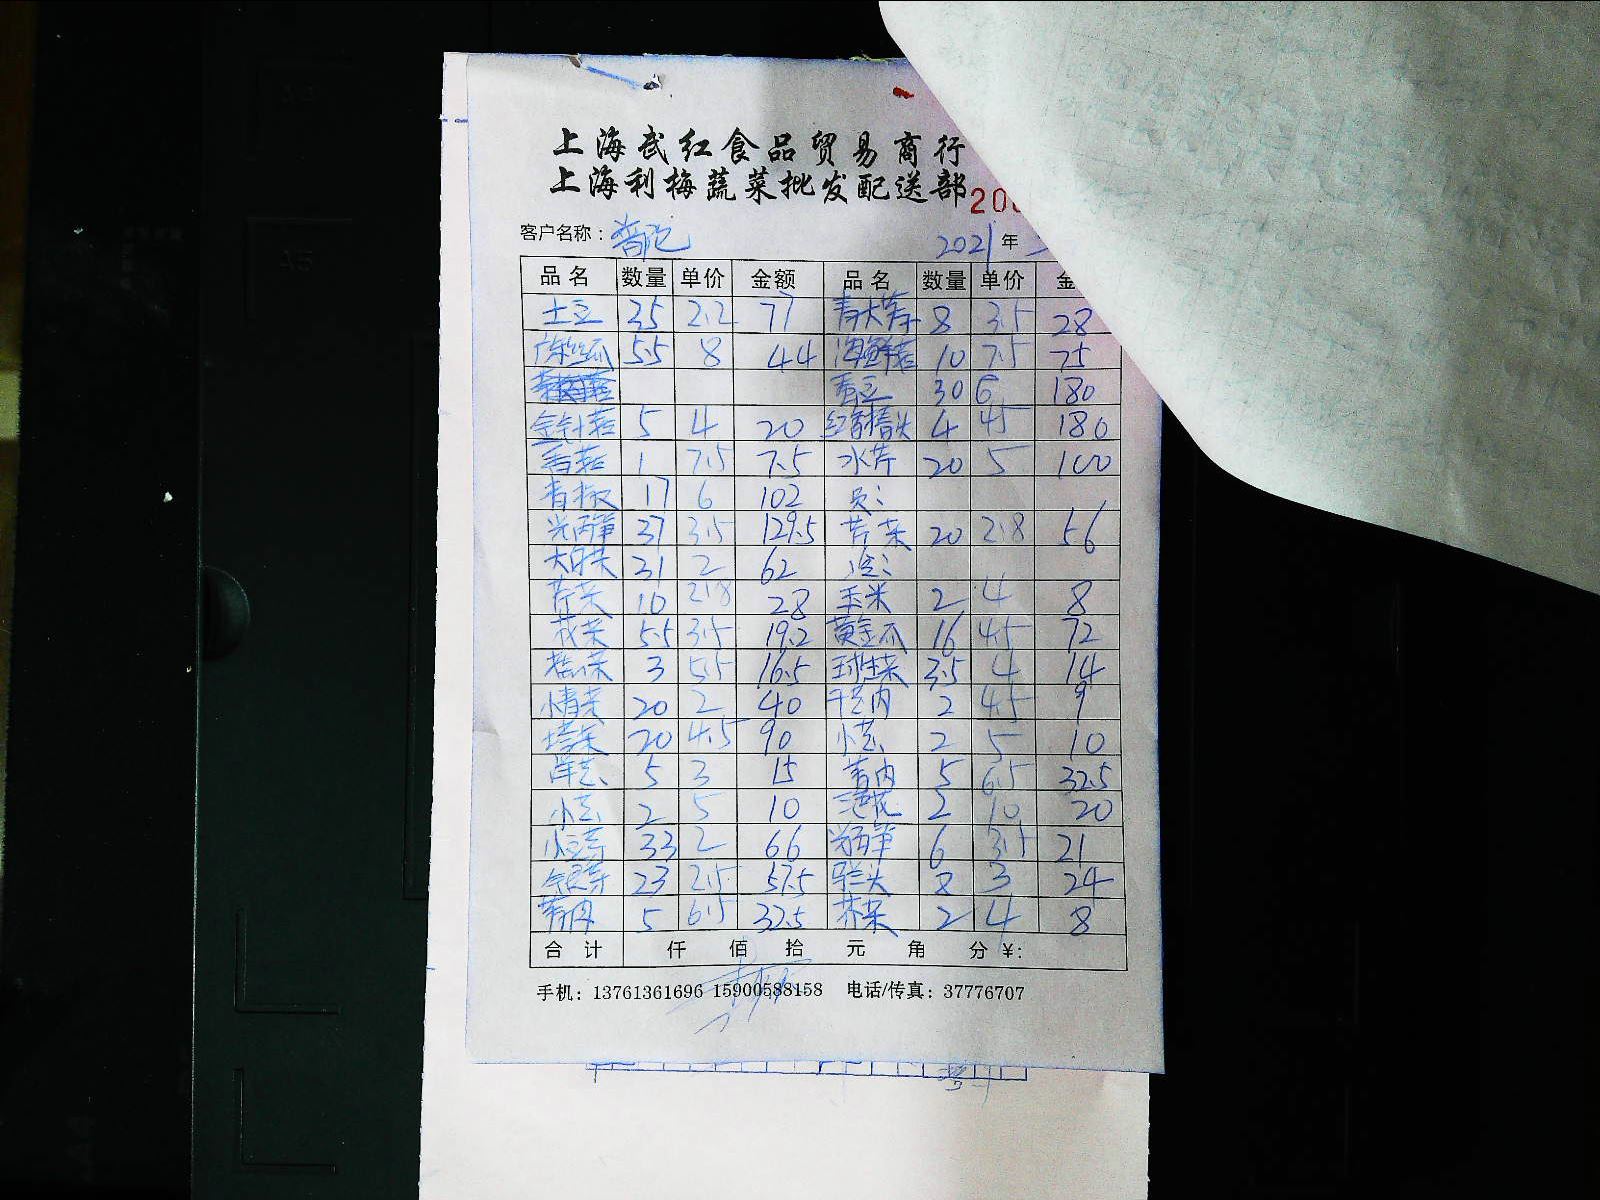 上海武红食品贸易商行
上海利梅蔬菜批发配送部
200
客户名称：普陀 2021年
品名 数量 单价 金额 品名 数量 单价 金
土豆 35 2.2 77 青大蒜 8 3.5 28
广东丝瓜 5.5 8 44 海鲜菇 10 7.5 75
青豆 30 6 180
金针菇 5 4 20 4 45 180
香菇 1 7.5 7.5 水芹 20 5 100
青椒 17 6 102
光莴笋 37 3.5 129.5 芹菜 20 2.8 56
大白菜 31 2 62
芹菜 10 2.8 28 玉米 2 4 8
花菜 5.5 3.5 19.2 黄金瓜 16 4.5 72
3 5.5 16.5 球生菜 3.5 4 14
小青菜 20 2 40 2 4.5 9
塔菜 20 4.5 90 小芸 2 5 10
洋芸 5 3 15 青肉 5 6.5 32.5
小芸 2 5 10 2 10 20
小豆芽 33 2 66 光莴笋 6 3.5 21
银芽 23 2.5 57.5 8 3 24
青肉 5 6.5 32.5 芥菜 2 4 8
合计 仟 佰 拾 元 角 分 ￥:
手机：13761361696 15900588158 电话/传真：37776707